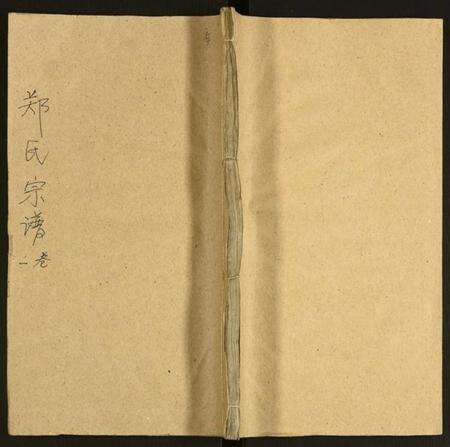 郑氏宗谱
一卷